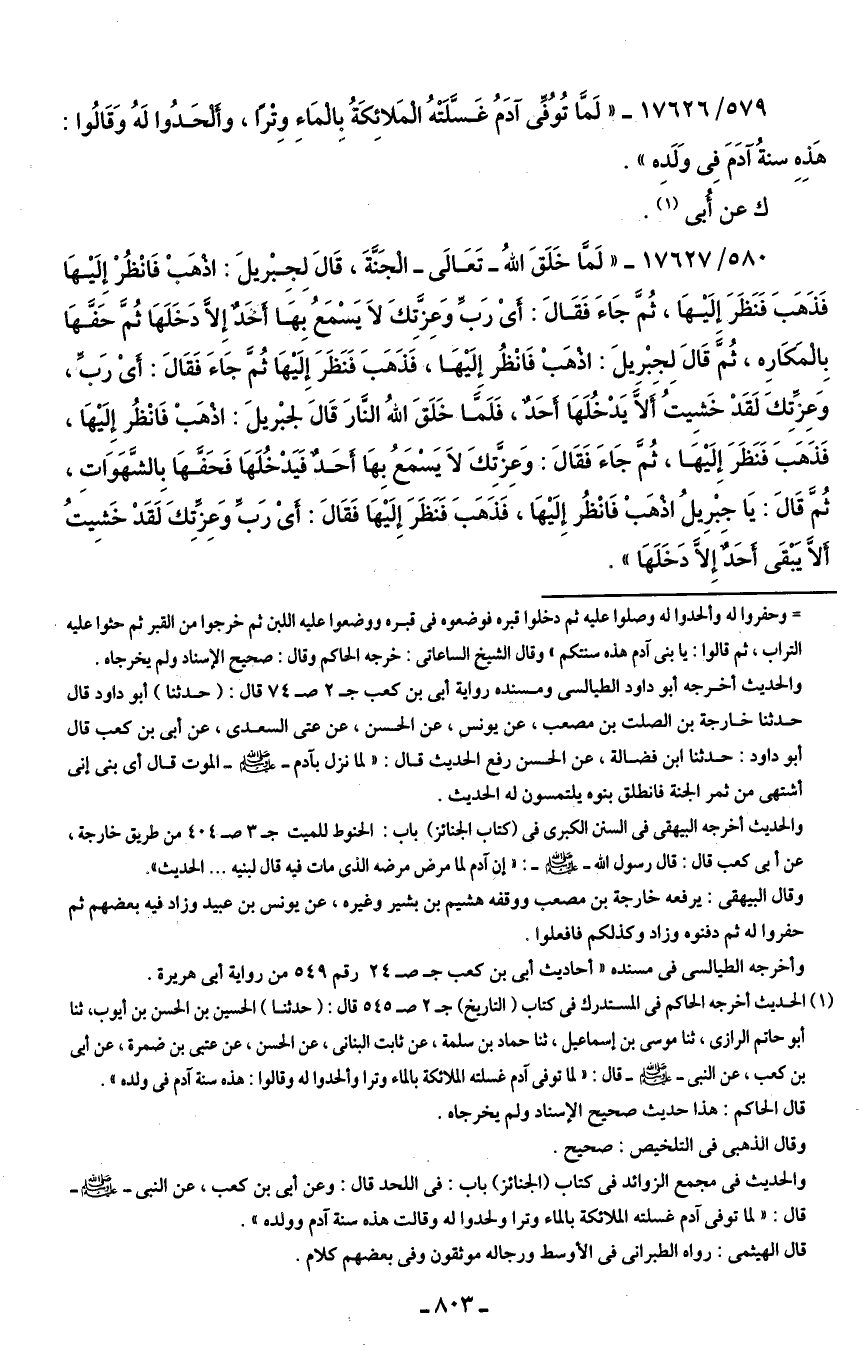 ٥٧٩/ ١٧٦٢٦ ـ « لَمَّا تُوُفِّى آدَمُ غَسَّلَتْهُ الْمَلائِكَةُ بِالْمَاءِ وِتْرًا ، وأَلْحَدُوا لَهُ وَقَالُوا :
هَذِهِ سنةُ آدَمَ فِى وَلَدِه » .
ك عن أُبى (١) .
٥٨٠/ ١٧٦٢٧ ـ « لَمَّا خَلَقَ اللهُ ـ تَعَالَى ـ الْجَنَّةَ ، قَالَ لِجِبْرِيلَ : اذْهَبْ فَانْظُرْ إِلَيْهَا
فَذَهَبَ فَنَظَرَ إِلَيْهَا ، ثُمَّ جَاءَ فَقَالَ : أَىْ رَبِّ وَعِزَّتِكَ لاَ يَسْمَعُ بِهَا أَحَدٌ إِلاَّ دَخَلَهَا ثُمَّ حَفَّهَا
بِالْمَكَارِه ، ثُمَّ قَالَ لِجِبْرِيلَ : اذْهَبْ فَانْظُر إِلَيْهَا ، فَذَهَبَ فَنَظَرَ إِلَيْهَا ثُمَّ جَاءَ فَقَالَ : أَىْ رَبِّ ،
وَعِزَّتِكَ لَقَدْ خَشيتُ أَلاَّ يَدْخُلَهَا أَحَدٌ ، فَلَمَّا خَلَقَ اللهُ النَّارَ قَالَ لجْبِريلَ : اذْهَبْ فَانْظُر إِلَيْهَا ،
فَذَهَبَ فَنَظَرَ إِلَيْهَا ، ثُمَّ جَاءَ فَقَالَ : وَعِزَّتِكَ لاَ يَسْمَعُ بِهَا أَحَدٌ فَيَدْخُلُهَا فَحَفَّهَا بِالشَّهَوَاتِ ،
ثُمَّ قَالَ : يَا جِبْرِيلُ اذْهَبْ فَانْظُر إِلَيْهَا ، فَذَهَبَ فَنَظَرَ إِلَيْهَا فَقَالَ : أَىْ رَبِّ وَعِزَّتِكَ لَقَدْ خَشيتُ
أَلاَّ يَبْقَى أَحَدٌ إِلاَّ دَخَلَهَا » .
= وحفروا له وألحدوا له وصلوا عليه ثم دخلوا قبره فوضعوه فى قبره ووضعوا عليه اللبن ثم خرجوا من القبر ثم حثوا عليه
التراب ، ثم قالوا : يا بنى آدم هذه سنتكم » وقال الشيخ الساعاتى : خرجه الحاكم وقال : صحيح الإسناد ولم يخرجاه .
والحديث أخرجه أبو داود الطيالسى ومسنده رواية أبى بن كعب جـ ٢ صـ ٧٤ قال : ( حدثنا ) أبو داود قال
حدثنا خارجة بن الصلت بن مصعب ، عن يونس ، عن الحسن ، عن عتى السعدى ، عن أبى بن كعب قال
أبو داود : حدثنا ابن فضالة ، عن الحسن رفع الحديث قال : « لما نزل بآدم ـ ﷺ ـ الموت قال أى بنى إنى
أشتهى من ثمر الجنة فانطلق بنوه يلتمسون له الحديث .
والحديث أخرجه البيهقى فى السنن الكبرى فى (كتاب الجنائز) باب : الحنوط للميت جـ ٣ صـ ٤٠٤ من طريق خارجة ،
عن أبى كعب قال : قال رسول الله ـ ﷺ ـ : « إن آدم لما مرض مرضه الذى مات فيه قال لبنيه ... الحديث».
وقال البيهقى : يرفعه خارجة بن مصعب ووقفه هشيم بن بشير وغيره ، عن يونس بن عبيد وزاد فيه بعضهم ثم
حفروا له ثم دفنوه وزاد وكذلكم فافعلوا .
وأخرجه الطيالسى فى مسنده « أحاديث أبى بن كعب جـ صـ ٢٤ رقم ٥٤٩ من رواية أبى هريرة .
(١) الحديث أخرجه الحاكم فى المستدرك فى كتاب ( التاريخ) جـ ٢ صـ ٥٤٥ قال : ( حدثنا ) الحسين بن الحسن بن أيوب، ثنا
أبو حاتم الرازى ، ثنا موسى بن إسماعيل ، ثنا حماد بن سلمة ، عن ثابت البنانى ، عن الحسن ، عن عتبى بن ضمرة ، عن أبى
بن كعب ، عن النبى ـ ﷺ ـ قال : « لما توفى آدم غسلته الملائكة بالماء وترا وألحدوا له وقالوا : هذه سنة آدم فى ولده » .
قال الحاكم : هذا حديث صحيح الإسناد ولم يخرجاه .
وقال الذهبى فى التلخيص : صحيح .
والحديث فى مجمع الزوائد فى كتاب (الجنائز) باب : فى اللحد قال : وعن أبى بن كعب ، عن النبى ـ ﷺ ـ
قال : « لما توفى آدم غسلته الملائكة بالماء وترا ولحدوا له وقالت هذه سنة آدم وولده » .
قال الهيثمى : رواه الطبرانى فى الأوسط ورجاله موثقون وفى بعضهم كلام .
ـ ٨٠٣ ـ